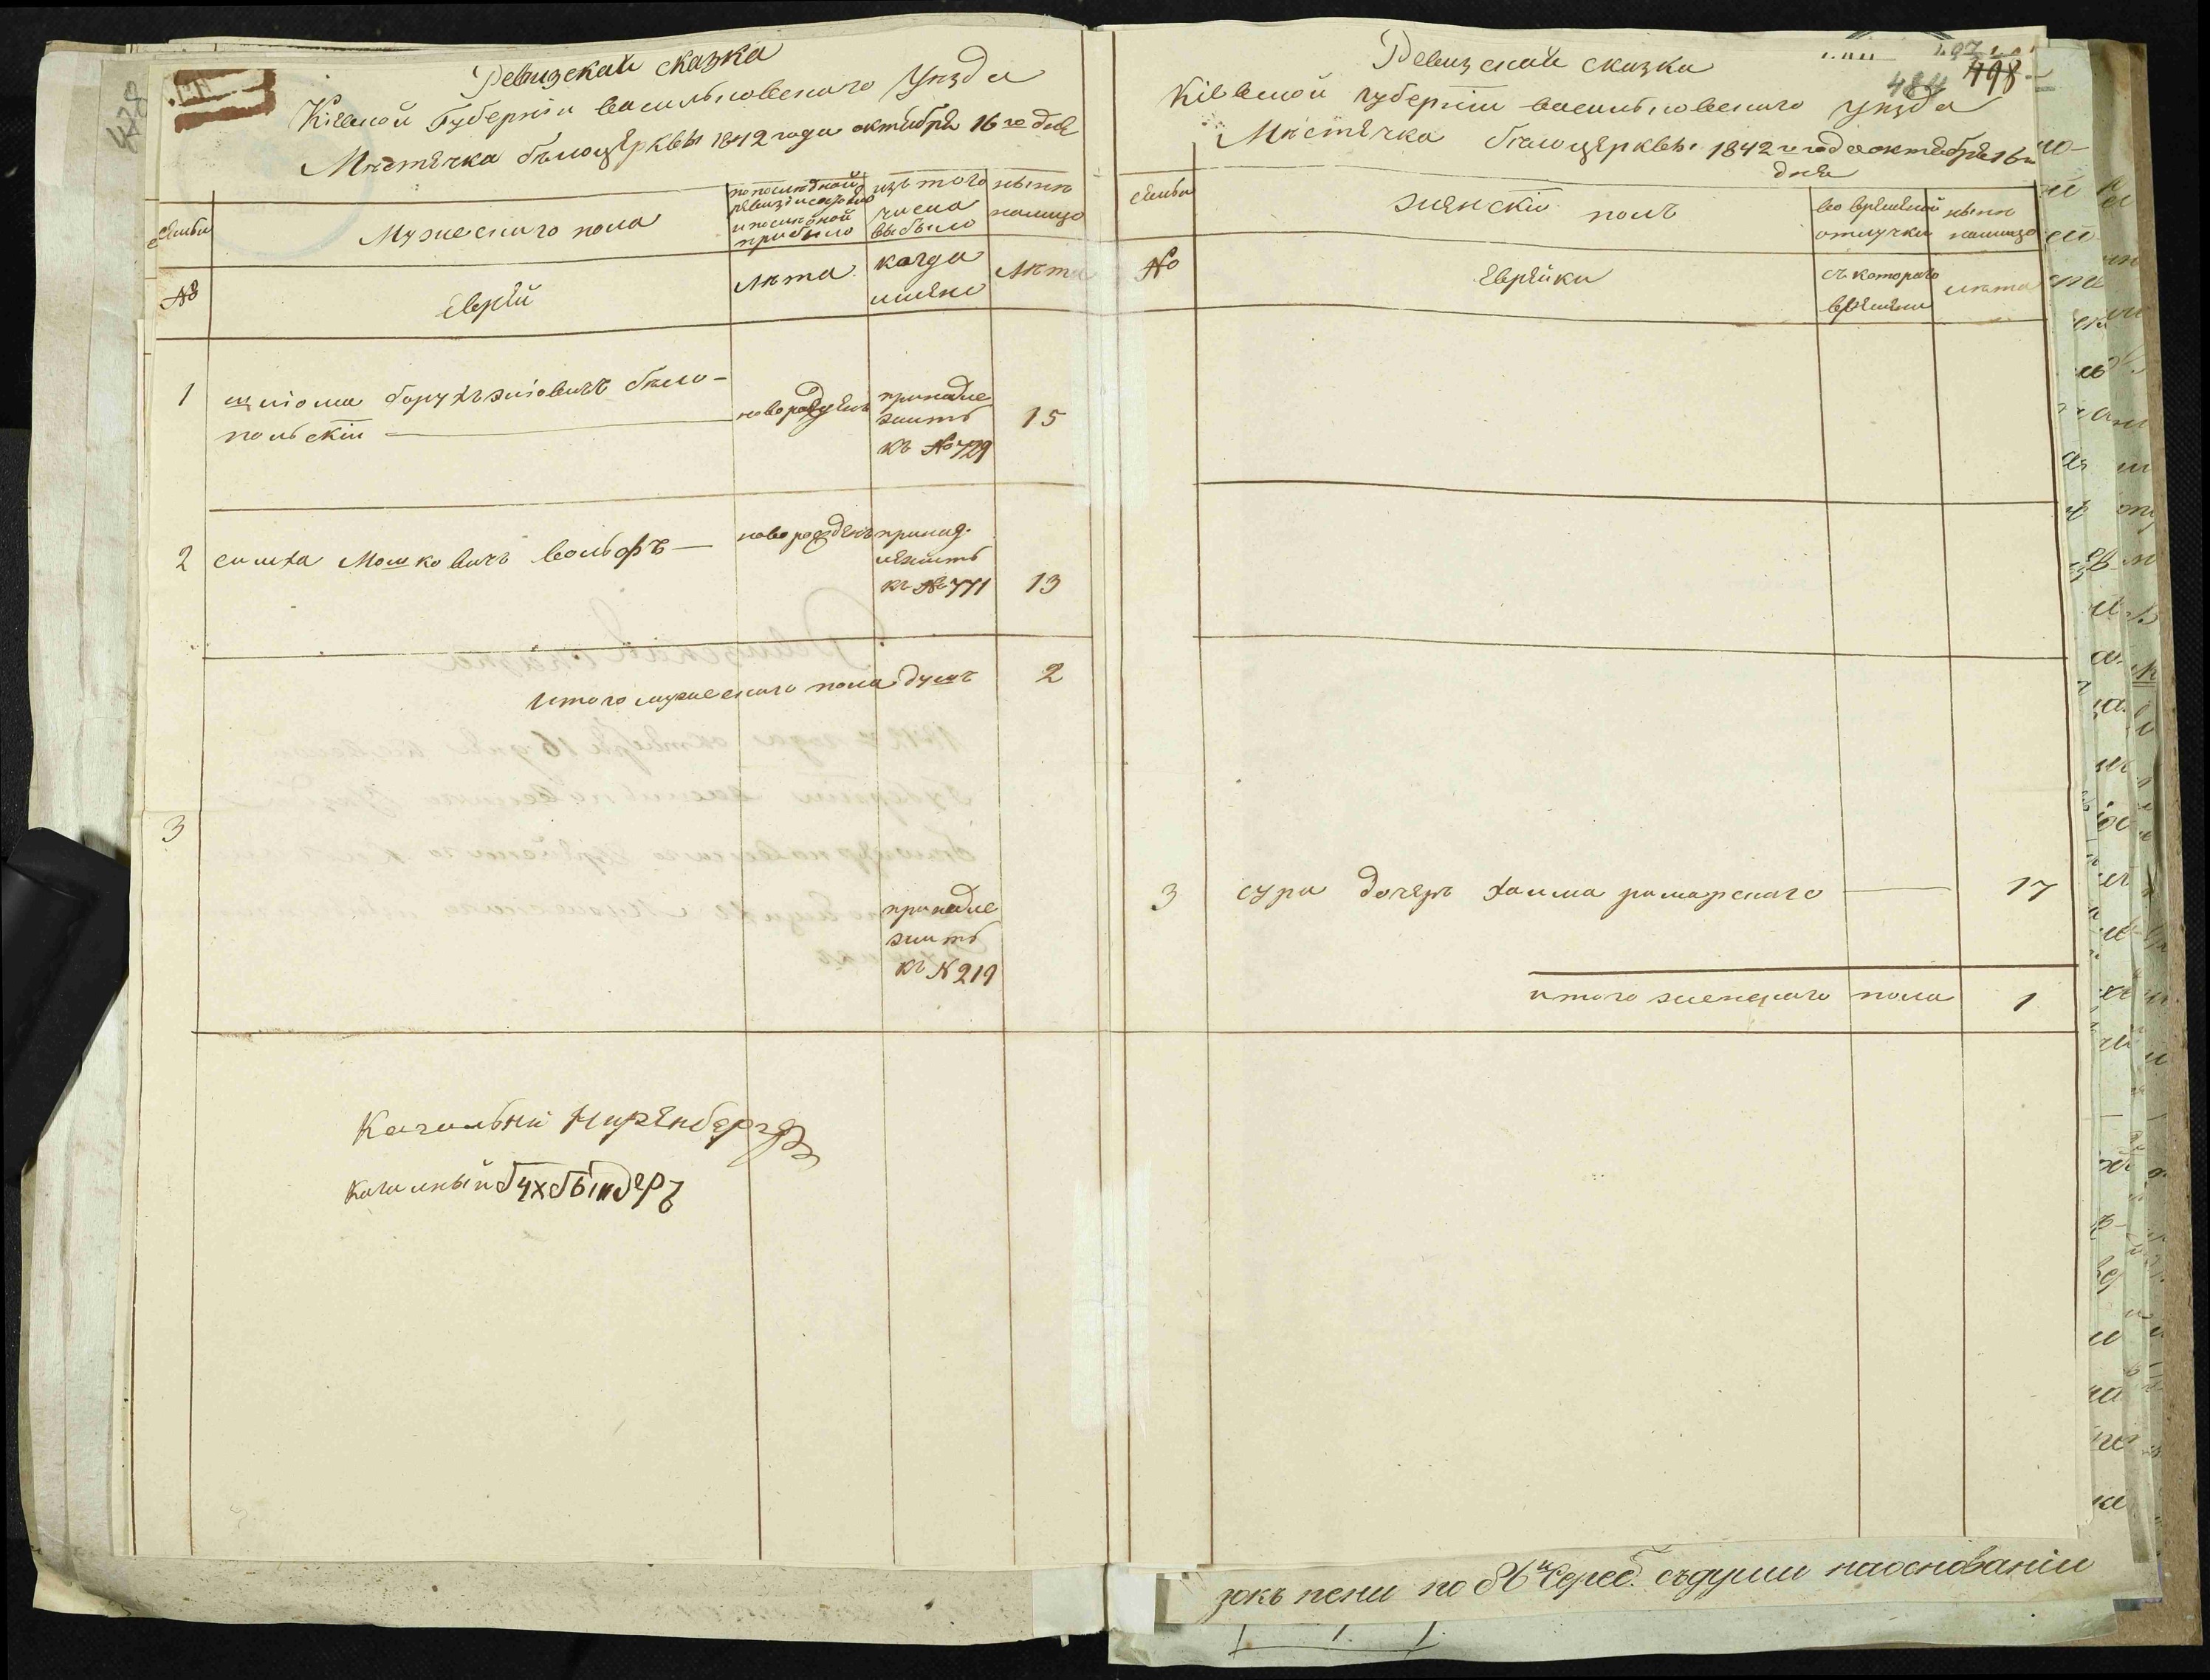 478
Ревизская сказка
Кіевской Губерніи васильковского уезда
Мѣстечка бѣлоцерквы 1842 года октября 16го дня
семьи
Мужеского пола
по последной
ревизіи состояло
и после оной
прибыло
изъ того
числа
выбыло
нынѣ
налицо
№
Еврѣй
лѣта
когда
имено
лѣта
1
шліома борухъ зиовичъ бѣло-
польскій
новорожденъ
принадле
житъ
къ № 729
15
2
симха Мошковичъ вольфъ
новорожденъ
принад
лежитъ
къ № 771
13
итого мужеского пола душъ
2
3
принадле
житъ
къ N 219
Кагальній Ниренбергъ
кагалный бухбіндеръ
484 498
Ревизская сказка
Кіевской губерніи васильковского уезда
Мѣстечка бѣлоцерквы 1842 года октября 16
дня
семьи
женскій полъ
во времѣной
отлучки
нынѣ
налицо
№
Еврѣйки
съ котораго
времѣни
лѣта
3
сура дочеръ хаима римарского
17
итого женскаго пола
1
зокъ пени по 86 к сереб. съдуши наоснованіи